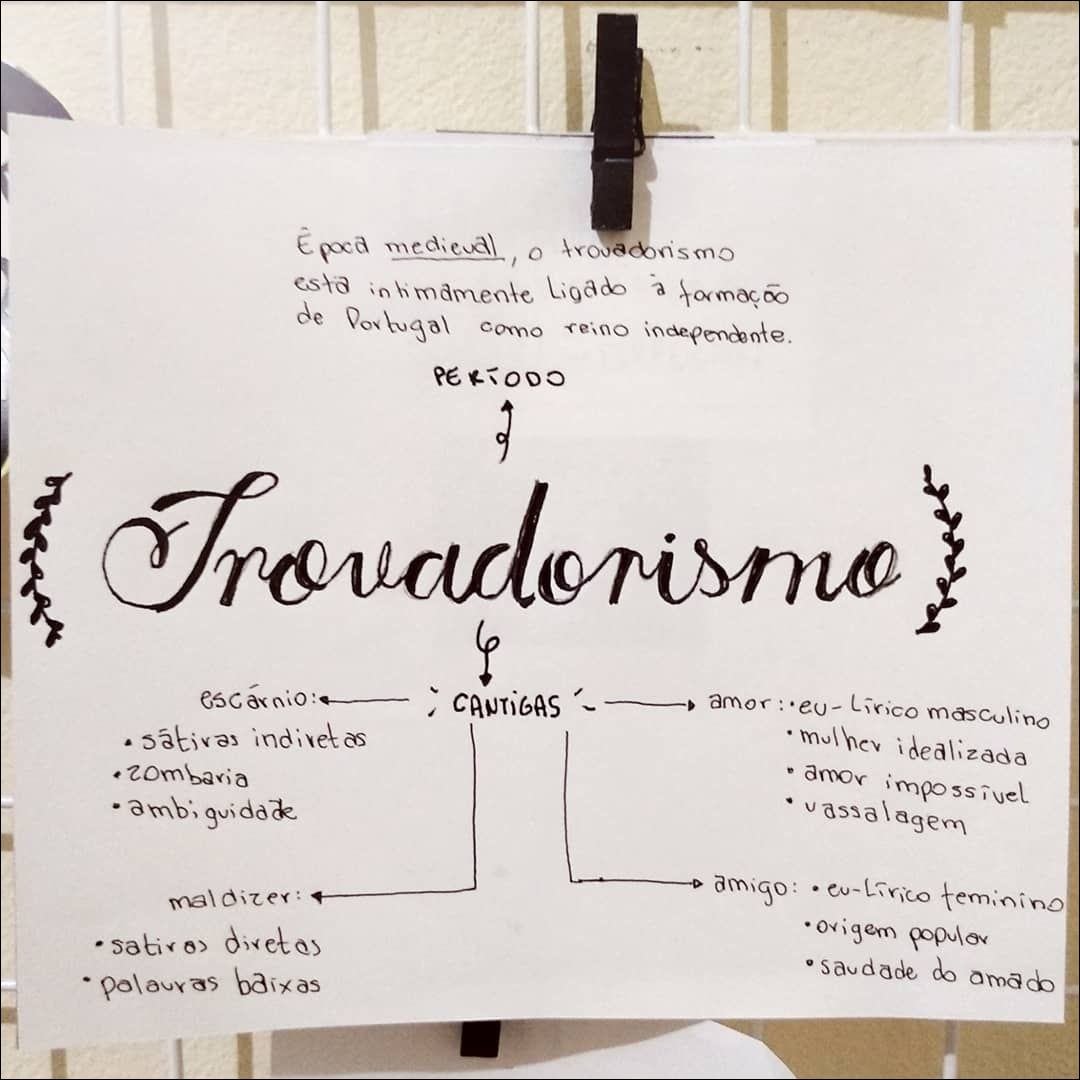 Época medieval, o trovadorismo
está intimamente Ligado à formação
de Portugal como reino independente.
PERÍODO
Trovadorismo
CANTIGAS
escárnio:
• sátiras indiretas
• zombaria
• ambiguidade
maldizer:
• satiras diretas
• palavras baixas
amor: • eu-Lírico masculino
• mulher idealizada
• amor impossível
• vassalagem
amigo: • eu-Lírico feminino
• origem popular
• saudade do amado